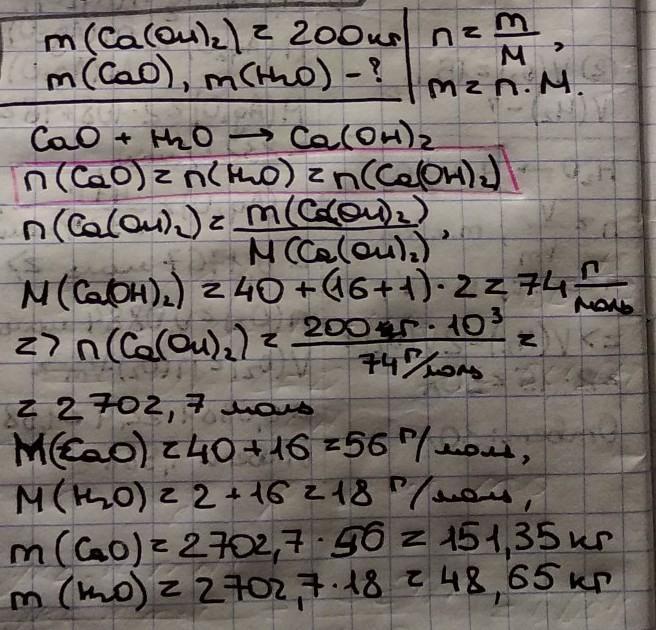 m(Ca(OH)₂) = 200 кг | n = m/M,
m(CaO), m(H₂O) - ? | m = n · M.
CaO + H₂O → Ca(OH)₂
n(CaO) = n(H₂O) = n(Ca(OH)₂)
n(Ca(OH)₂) = m(Ca(OH)₂)/M(Ca(OH)₂),
M(Ca(OH)₂) = 40 + (16+1) · 2 = 74 г/моль
=> n(Ca(OH)₂) = 200 кг · 10³/74 г/моль =
= 2702,7 моль
M(CaO) = 40 + 16 = 56 г/моль,
M(H₂O) = 2 + 16 = 18 г/моль,
m(CaO) = 2702,7 · 56 = 151,35 кг
m(H₂O) = 2702,7 · 18 = 48,65 кг